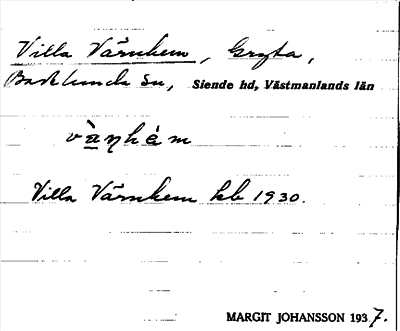 Villa Värnhem, Gryta,
Badelunda sn, Siende hd, Västmanlands län
và̱ŋhém
Villa Värnhem kb 1930.
MARGIT JOHANSSON 1937.